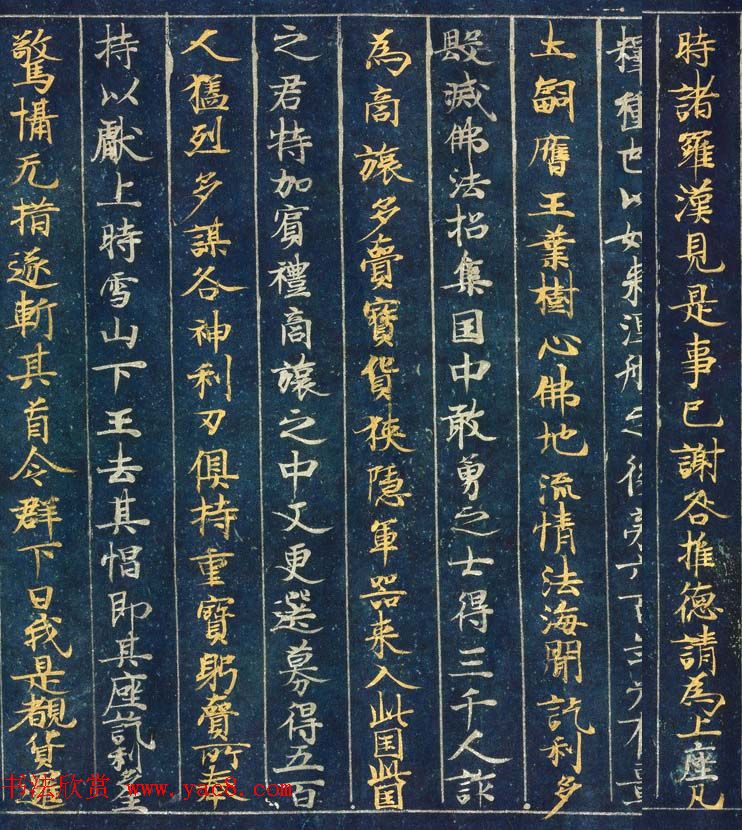 時諸羅漢見是事已謝咎推德請為上座凡
種也以如来涅
土嗣膺王業樹心佛地流情法海聞訖利多
毀滅佛法招集国中敢勇之士得三千人詐
為商旅多賷寶貨狹隱軍器来入此国此国
之君特加賓禮商旅之中又更選募得五百
人猛烈多謀各神利刃俱持重寶躬賷所奉
持以獻上時雪山下王去其帽即其座訖利多王
驚懾无措遂斬其首令群下曰我是覩貨
书法欣赏 www.yac8.com